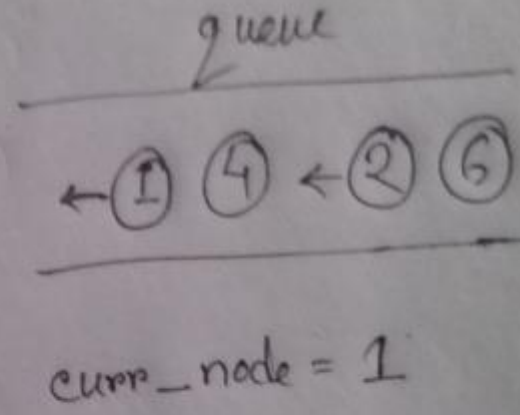 queue
← 1 4 ← 2 6
curr_node = 1